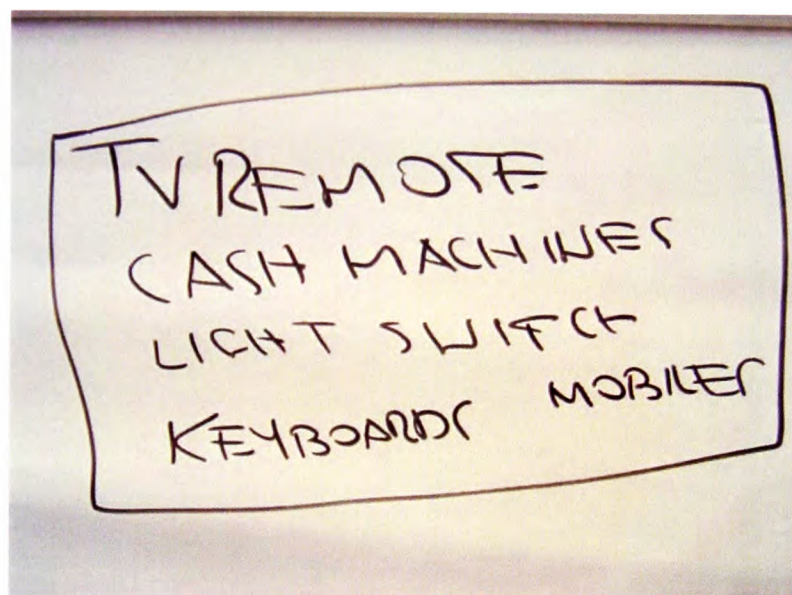 TV REMOTE
CASH MACHINES
LIGHT SWITCH
KEYBOARDS MOBILES